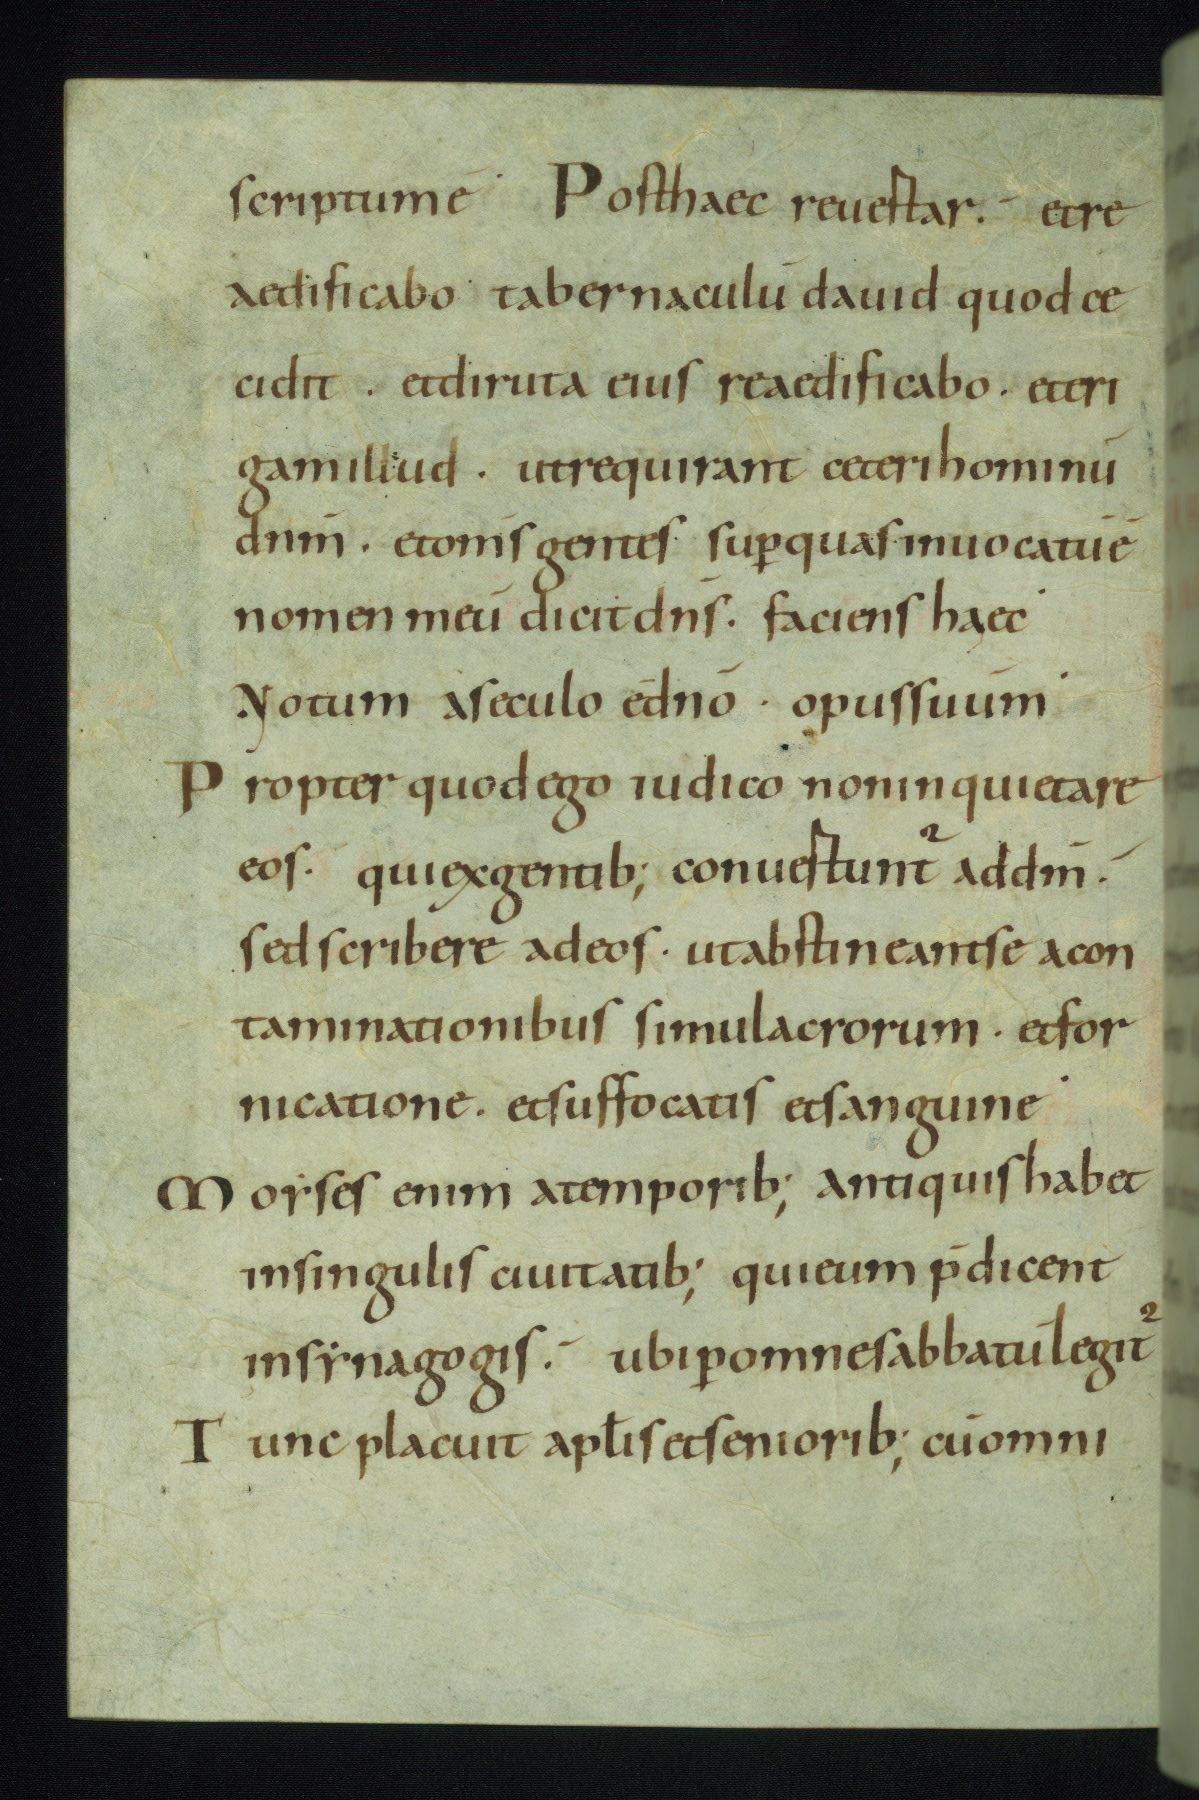 scriptumē· Posthaec reuertar. etre
aedificabo· tabernaculū dauid quod ce
cidit . etdiruta eius reaedificabo . eteri
gamillud . utrequirant ceterihominū
dnm̄ . etom̄s gentes· sup̱quas inuocatūē
nomen meū dicit dn̄s. faciens haec·
Notum aseculo ēdnō . opussuum·
Propter quod ego iudico noninquietare
eos. quiexgentib; conuertunt᷑ addm̄.
sed scribere adeos . utabstineantse acon
taminationibus simulacrorum . etfor
nicatione. etsuffocatis etsanguine·
Moẏses enim atemporib; antiquis habet
insingulis ciuitatib; quieum p̄dicent
insẏnagogis. ubip̱omnesabbatūlegit᷑
Tunc placuit apłis etseniorib; cūomni